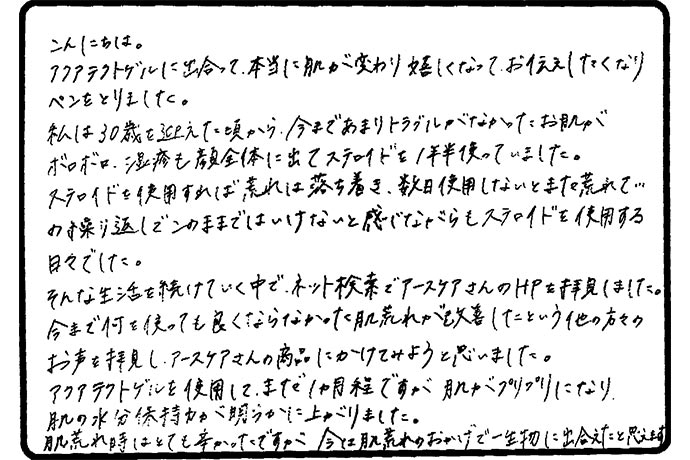 こんにちは。
アクアテクトゲルに出合って、本当に肌が変わり嬉しくなって、お伝えしたくなり
ペンをとりました。
私は30歳を迎えた頃から、今まであまりトラブルがなかったお肌が
ボロボロ、湿疹も顔全体に出てステロイドを1年半使っていました。
ステロイドを使用すれば荒れは落ち着き、数日使用しないとまた荒れて…
の繰り返しでこのままではいけないと感じながらもステロイドを使用する
日々でした。
そんな生活を続けていく中で、ネット検索でアースケアさんのHPを拝見しました。
今まで何を使っても良くならなかった肌荒れが改善したという他の方々の
お声を拝見し、アースケアさんの商品にかけてみようと思いました。
アクアテクトゲルを使用して、まだ1か月程ですが 肌がプリプリになり、
肌の水分保持力が明らかに上がりました。
肌荒れ時はとても辛かったですが 今は肌荒れのおかげで一生物に出合えたと思えます